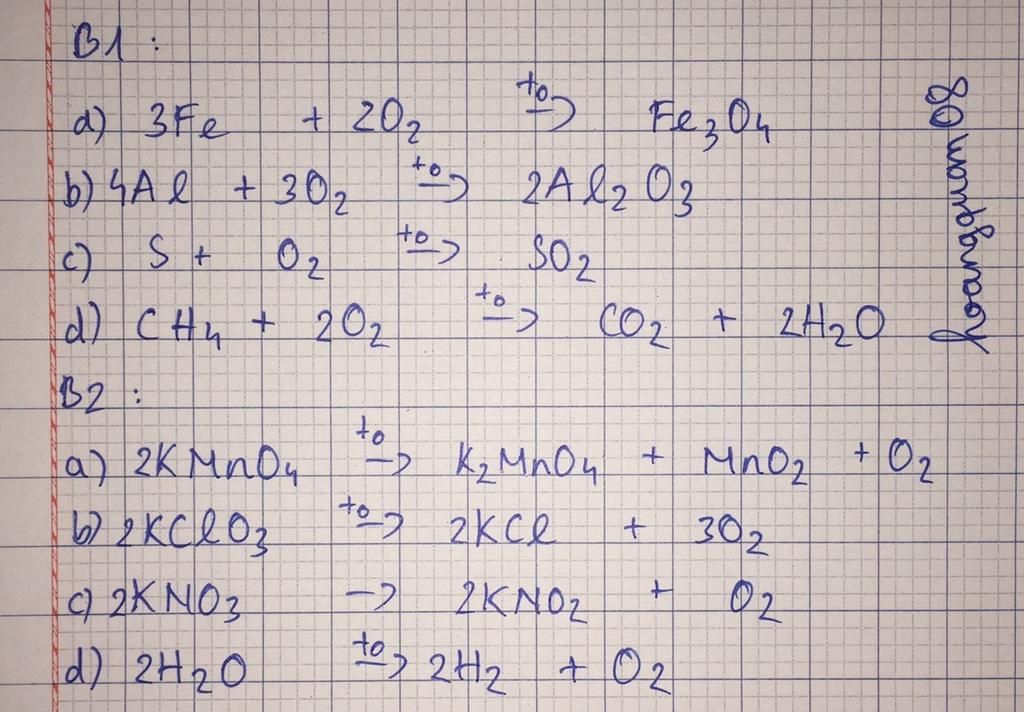 B1 :
a) 3Fe + 2O₂ t°→ Fe₃O₄
b) 4Al + 3O₂ t°→ 2Al₂O₃
c) S + O₂ t°→ SO₂
d) CH₄ + 2O₂ t°→ CO₂ + 2H₂O
B2 :
a) 2KMnO₄ t°→ K₂MnO₄ + MnO₂ + O₂
b) 2KClO₃ t°→ 2KCl + 3O₂
c) 2KNO₃ → 2KNO₂ + O₂
d) 2H₂O t°→ 2H₂ + O₂
hoangquan08